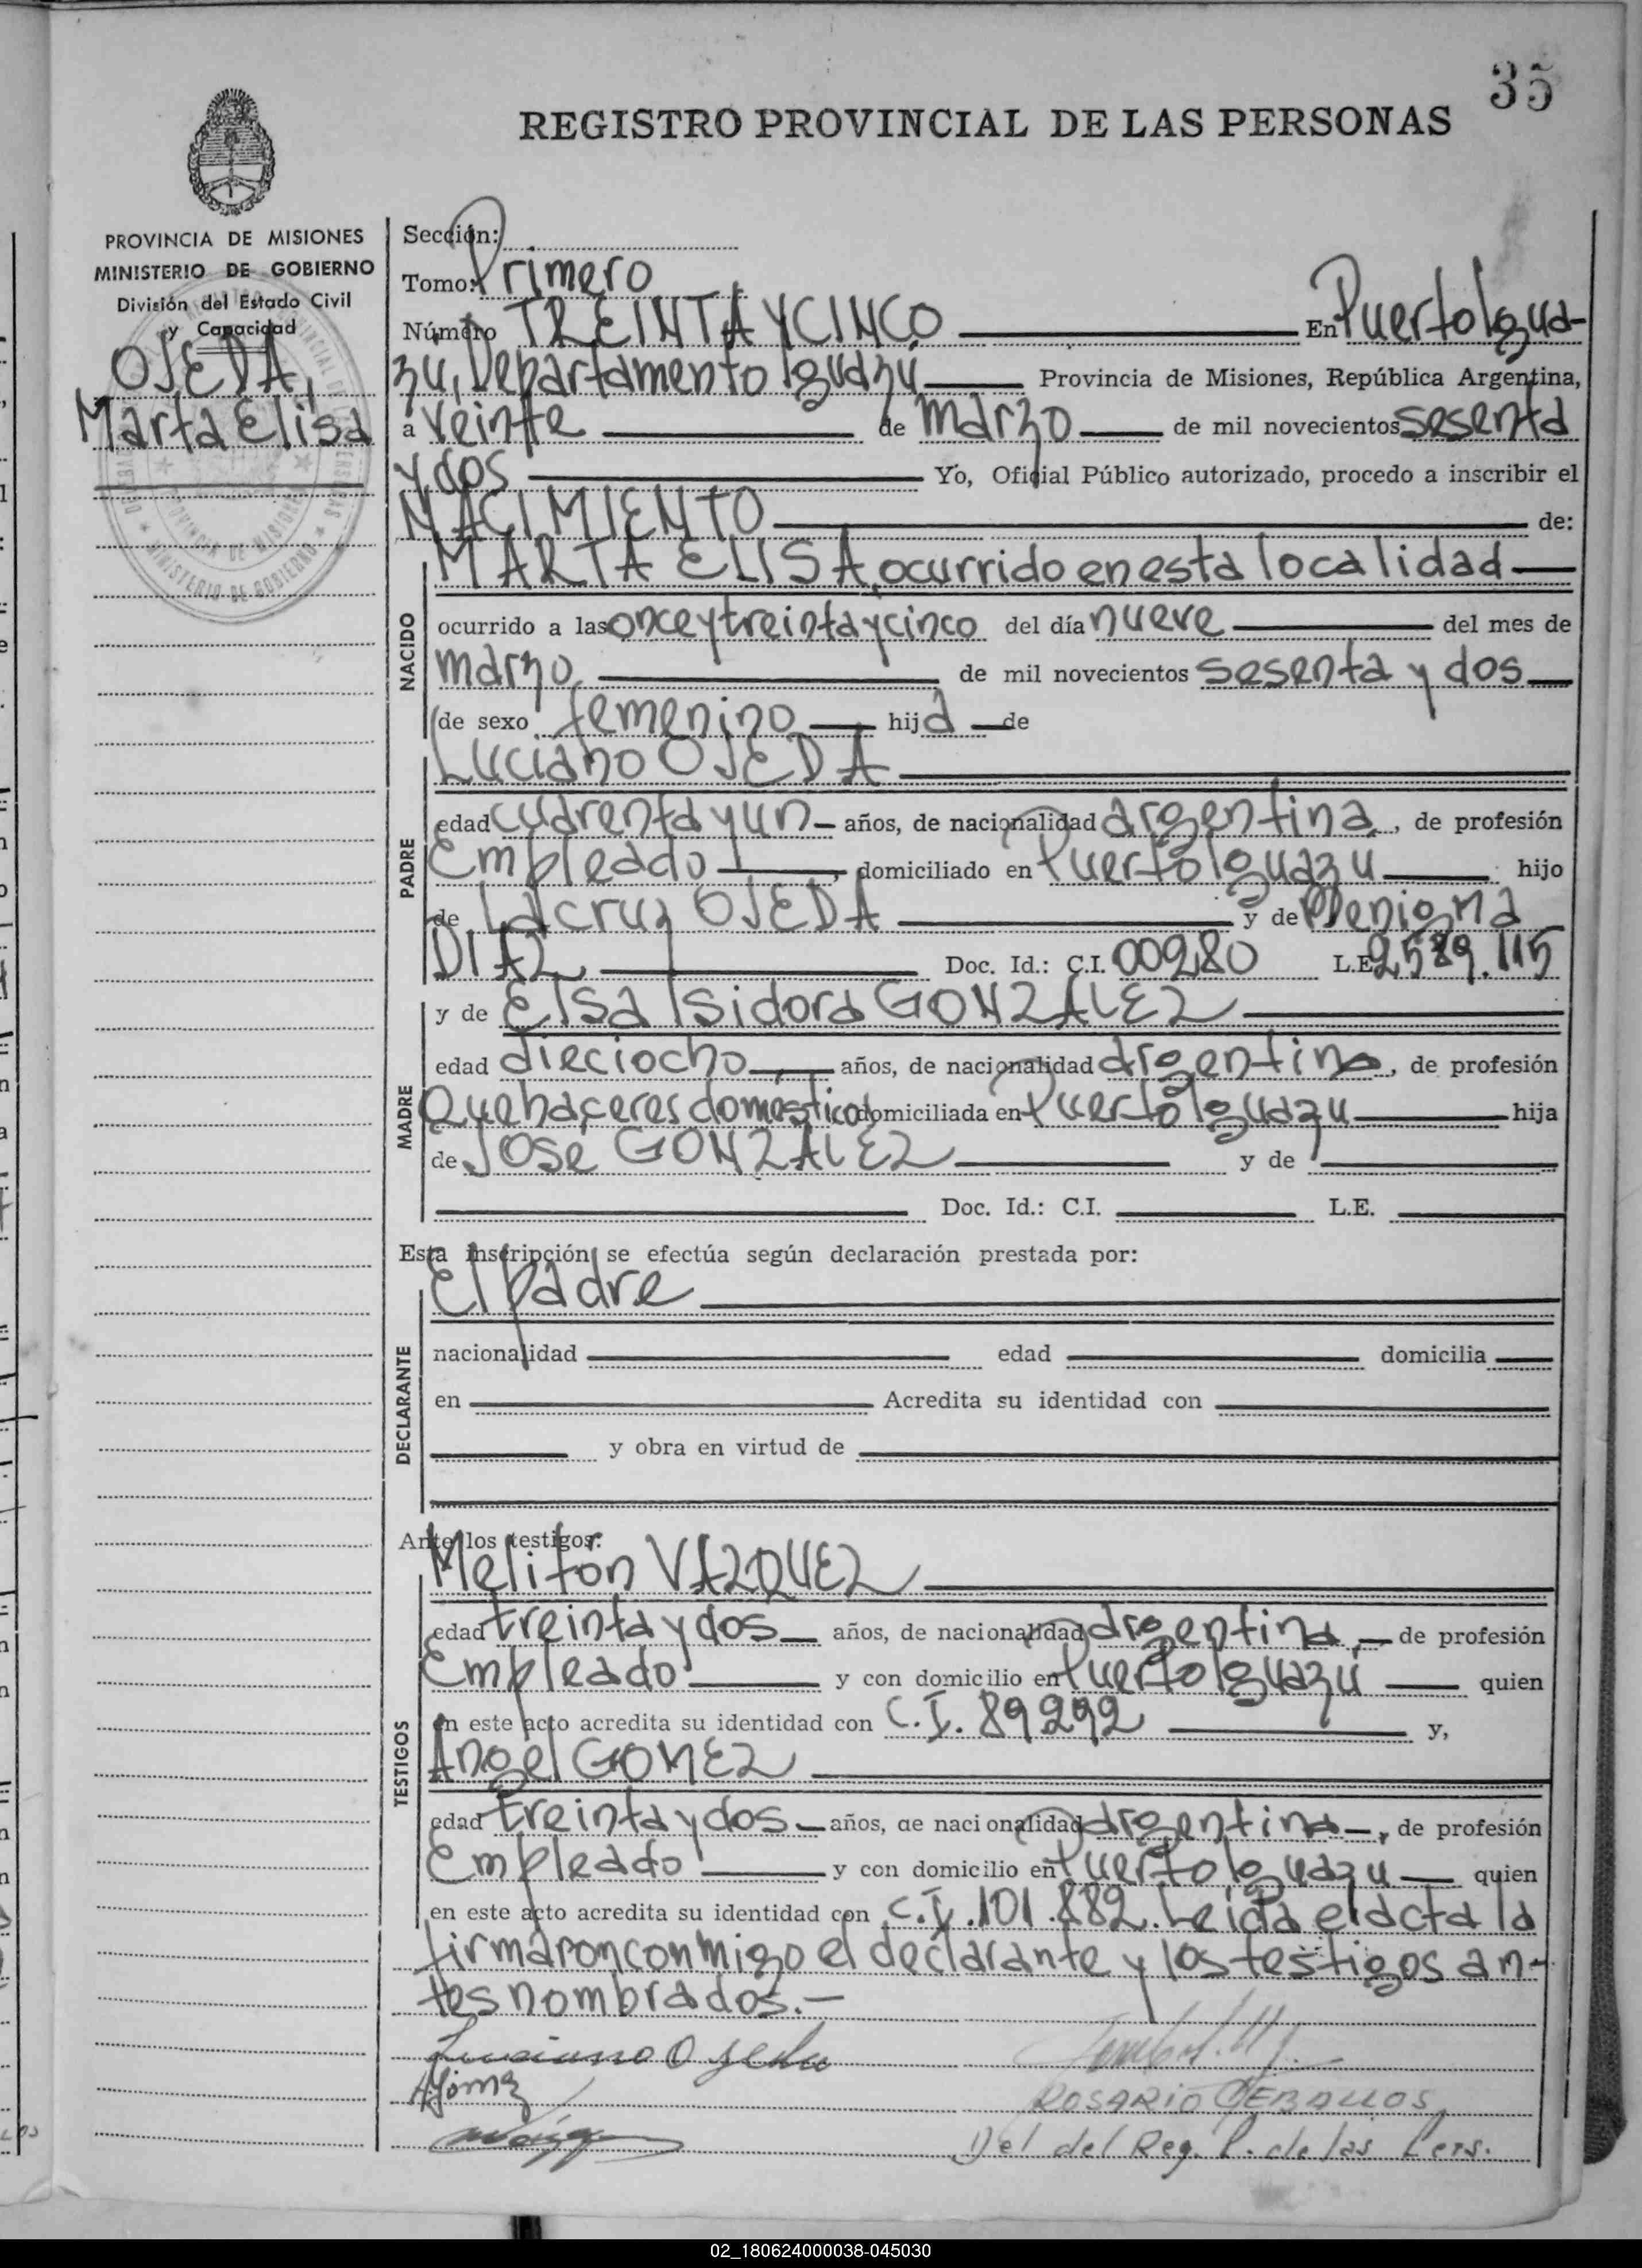 35
REGISTRO PROVINCIAL DE LAS PERSONAS
PROVINCIA DE MISIONES
MINISTERIO DE GOBIERNO
División del Estado Civil
y Capacidad
OJEDA,
Marta Elisa
Sección:
Tomo: Primero
Número TREINTA Y CINCO En Puerto Igua-
zu, Departamento Iguazú Provincia de Misiones, República Argentina,
a veinte de marzo de mil novecientos sesenta
y dos Yo, Oficial Público autorizado, procedo a inscribir el
NACIMIENTO de:
NACIDO
MARTA ELISA, ocurrido en esta localidad
ocurrido a las once y treinta y cinco del día nueve del mes de
marzo de mil novecientos sesenta y dos
de sexo femenino hija de
PADRE
Luciano OJEDA
edad cuarenta y un años, de nacionalidad argentina, de profesión
Empleado, domiciliado en Puerto Iguazu hijo
de Lacruz OJEDA y de Benigna
DIAZ Doc. Id.: C.I. 00980 L.E. 2589.115
MADRE
y de Elsa Isidora GONZALEZ
edad dieciocho años, de nacionalidad argentina, de profesión
Quehaceres domésticos domiciliada en Puerto Iguazu hija
de José GONZALEZ y de
Doc. Id.: C.I. L.E.
Esta inscripción se efectúa según declaración prestada por:
DECLARANTE
El padre
nacionalidad edad domicilia
en Acredita su identidad con
y obra en virtud de
Ante los testigos:
TESTIGOS
Meliton VAZQUEZ
edad treinta y dos años, de nacionalidad argentina, de profesión
Empleado y con domicilio en Puerto Iguazú quien
en este acto acredita su identidad con C.I. 89292 y,
Angel GOMEZ
edad treinta y dos años, de nacionalidad argentina, de profesión
Empleado y con domicilio en Puerto Iguazu quien
en este acto acredita su identidad con C.I. 101.882. Leida el acta la
firmaron conmigo el declarante y los testigos an-
tes nombrados.-
Luciano Ojeda
AGomez
ROSARIO CEBALLOS
Del del Reg. P. de las Pers.
02_180624000038-045030